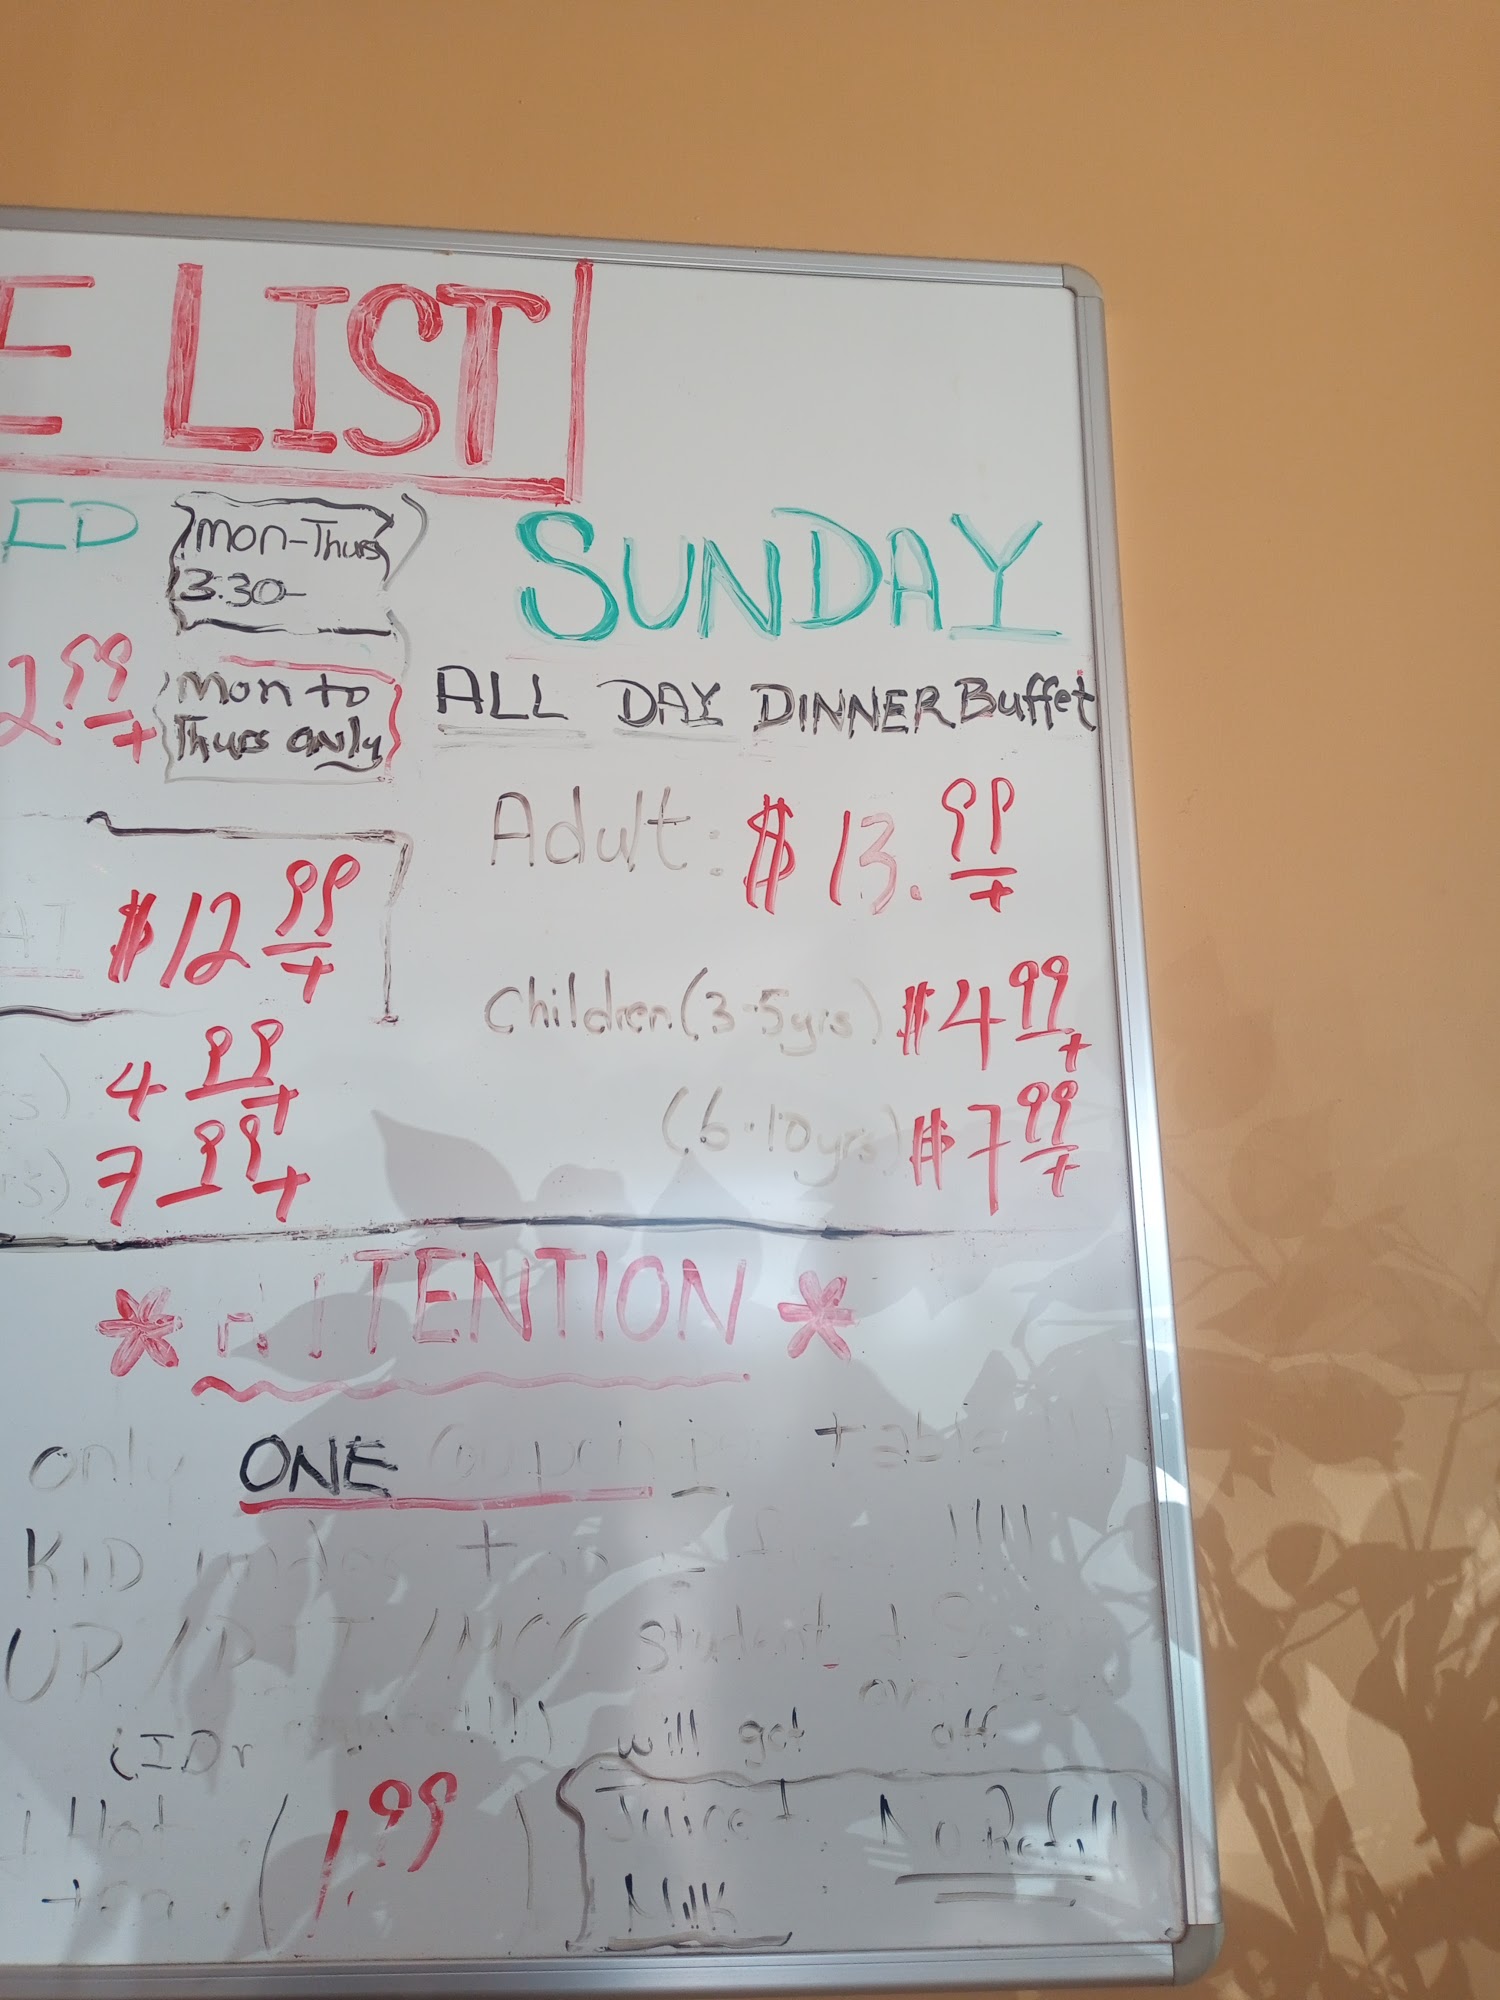 E LIST
ED
Mon-Thurs
3:30-
2.99+
Mon to
Thurs only
$12 99+
4 99+
7 99+
SUNDAY
ALL DAY DINNER Buffet
Adult: $13.99+
Children (3-5yrs) $4 99+
(6-10yrs) $7 99+
* ATTENTION *
only ONE coupon table
KID
UR/RIT/MCC student +
will get off
Hot (1.99)
Juice + No Refill
Milk